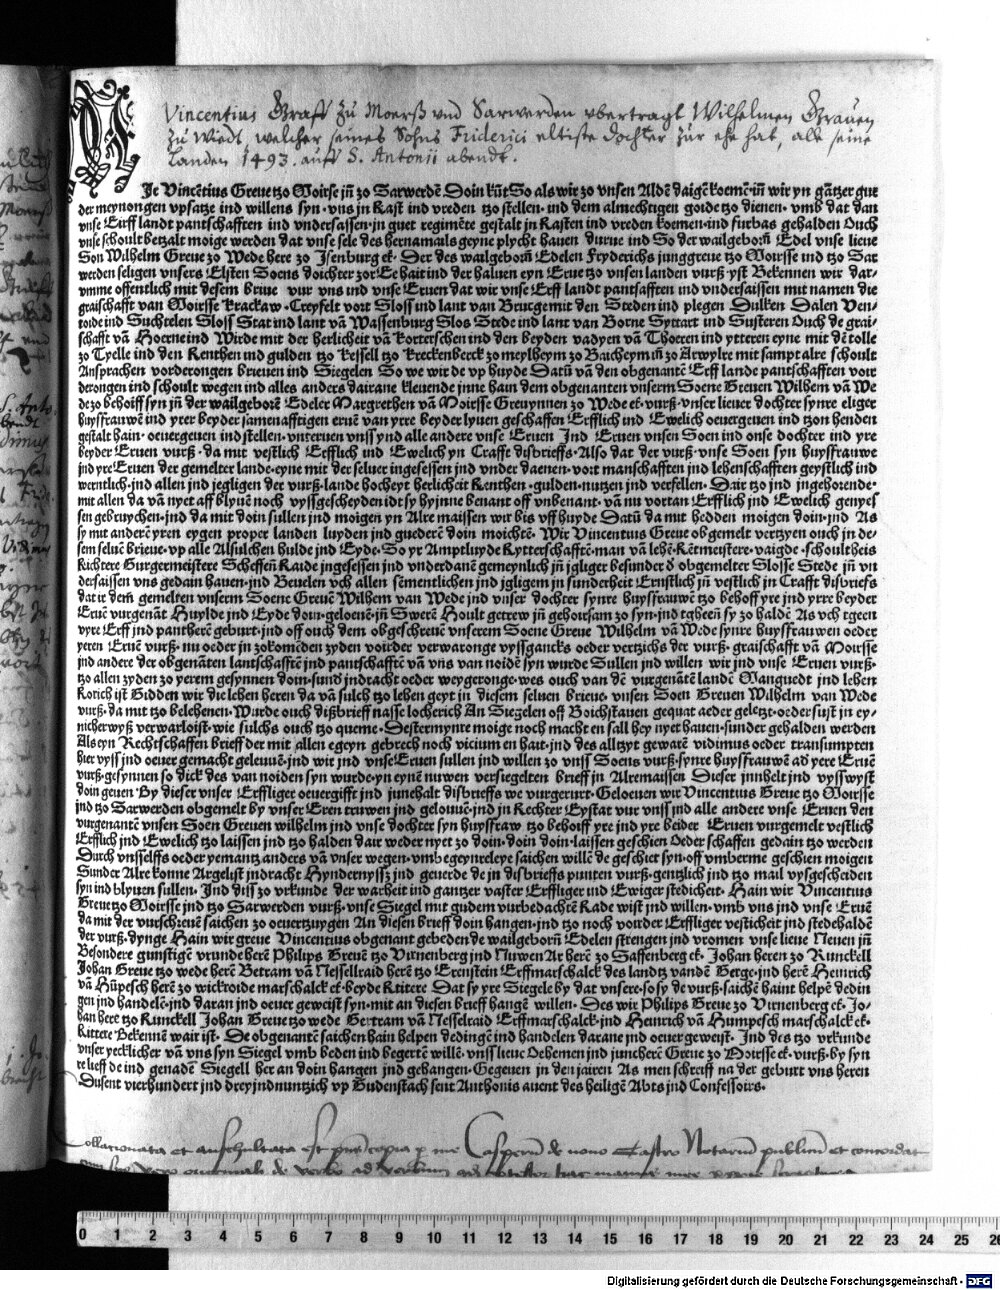 Vincentius Graff zu Moerß vnd Sarwerden vbertragt Wilhelmen Grauen
zu Wiedt, welcher seines Sohns Friderici eltiste dochter zur ehe hat, alle seine
Landen 1493. auff S. Antonii abendt.
Ir Vincētius Greue tzo Moirse jn̄ zo Sarwerdē Doin kūt So als wir zo vnsen Aldē daigē koemē in̄ wir yn gātzer gut
der meynongen vpsatze ind willens syn vns jn Rast ind vreden tzo stellen ind dem almechtigen goide tzo dienen vmb dat dan
vnse Eirff landt pantschafften ind vndersassen in guet regimēte gestalt in Rasten ind vreden koemen ind furbas gehalden Ouch
vnse schoult betzalt moige werden dat vnse sele des hernamails geyne plycht hauen durue ind So der wailgeborn̄ Edel vnse lieue
Son Wilhelm Greue zo Wede here zo Jsenburg etc. Der des wailgeborn̄ Edelen Fryderichs junggreue tzo Moirsse ind tzo Sar
werden seligen vnsers Elsten Soens doichter zor Ee hait ind der haluen eyn Erue tzo vnsen landen vurß yst Bekennen wir dar-
vmme offentlich mit desem briue vur vns ind vnse Eruen dat wir vnse Erff landt pantsafften ind vndersaissen mit namen die
graischafft van Moirsse krackaw Creyfelt vort Sloss ind lant van Bruegemit den Steden ind plegen Dulken Dalen Ven-
toide ind Suchtelen Sloss Stat ind lant vā Wassenburg Slos Stede ind lant van Borne Syttart ind Susteren Ouch de grai-
schafft vā Hoerneind Wirde mit der herlicheit vā kortterschen ind den beyden vadyen vā Thoeren ind ytteren eyne mit dē tolle
zo Tyelle ind den Renthen ind gulden tzo kessell tzo kreckenberck zo meylheym zo Baicheym in̄ zo Arwylre mit sampt alre schoult
Ansprachen vorderongen brieuen ind Siegelen So we wir de vp huyde Datū van den obgenantē Erff lande pantschafften voir
derongen ind schoult wegen ind alles anders dairane kleuende jnne hain dem obgenanten vnserm Soene Greuen Wilhem vā We
de zo behoiff syn jn̄ der wailgeborē Edeler Margrethen vā Moirsse Greuynnen zo Wede etc. vurß vnser lieuer dochter synre eliger
huysfrauwē ind yrer beyder samenafftigen eruē van yrre beyder lyuen geschaffen Erfflich ind Ewelich oeuergeuen ind tzon henden
gestalt hain oeuergeuen ind stellen vnteruen vnss ynd alle andere vnse Eruen Ind Eruen vnsen Soen ind onse dochter ind yre
beyder Eruen vurß da mit vestlich Erfflich ind Ewelich yn Crafft disbrieffs Also dat der vurß vnse Soen syn huysfrauwe
ind yre Eruen der gemelter lande eyne mit der seluer ingesessen jnd vnder daenen vort manschafften jnd lehenschafften geystlich ind
werntlich ind allen ind jegligen der vurß lande hocheyt herlicheit Renthen gulden nutzen jnd verfellen Dair tzo jnd ingehorende
mit allen da vā nyet aff blyuē noch vyssgescheyden idt sy hyinne benant off vnbenant vā nu vortan Erfflich jnd Ewelich genyes
sen gebruychen jnd da mit doin sullen jnd moigen yn Alre maissen wir bis vff huyde Datū da mit hedden moigen doin jnd As
sy mit anderē yren eygen proper landen luyden jnd guederē doin moichtē Wir Vincentius Greue obgemelt vertzyen ouch jn de-
sem seluē brieue vp alle Alsulchen hulde jnd Eyde So yr Amptluyde Rytterschafftē man vā lehē Rētmeistere vaigde schoultheis
Richtere Burgermeistere Scheffen̄ Raide jngesessen jnd vnderdanē gemeynlich jn̄ jgliger besunder d obgemelter Slosse Stede jn̄ vn
dersaissen vns gedain hauen jnd Beuelen vch allen sēmentlichen jnd jgligem jn sunderheit Ernstlich jn̄ vestlich jn Crafft disbriefs
dat ir dem gemelten vnserm Soene Greuē Wilhem van Wede jnd vnser dochter synre huysfrauwē tzo behoff yre jnd yrre beyder
Eruē vurgenāt Huylde jnd Eyde doin geloenē jn̄ Swerē Hoult getrew jn̄ gehoirsam zo syn jnd tgheen sy zo haldē As vch tgeen
vyre Erff jnd pantherē geburt jnd off ouch dem obgeschreuē vnserem Soene Greue Wilhelm vā Wede synre huysfrauwen oeder
yeren Eruē vurß nu oeder jn zokomēden zyden voirder verwaronge vyssgancks oeder vertzichs der vurß graischafft vā Moirsse
jnd andere der obgenāten lantschafftē jnd pantschafftē vā vns van noidē syn wurde Sullen jnd willen wir jnd vnse Eruen vurß
tzo allen zyden zo yerem gesynnen doin sund jndracht oeder weygeronge wes ouch van dē vurgenātē landē Manguedt jnd lehen
Rorich ist Bidden wir die lehen heren da vā sulch tzo lehen geyt jn diesem seluen brieue vnsen Soen Greuen Wilhelm van Wede
vurß da mit tzo belehenen Wurde ouch dißbrieff nasse locherich An Siegelen off Boichstauen gequat aeder geletzt oeder sust jn ey-
nicherwyß verwarloist wie sulchs ouch tzo queme Destermynre moige noch macht en sall hey nyer hauen sunder gehalden werden
Als eyn Rechtschaffen brieff der mit allen egeyn gebrech noch vicium en hait jnd des alltzyt gewarē vidimus oeder transumpten
hier vyss jnd oeuer gemacht geleuuē jnd wir jnd vnse Eruen sullen jnd willen zo vnss Soens vurß synre huysfrauwē ad yere Eruē
vurß gesynnen so dick des van noiden syn wurde yn eynē nuwen versiegelten brieff jn Alremaissen Dieser jnnhelt jnd vysswyst
doin geuen By dieser vnser Erffliger oeuergifft jnd junehalt disbrieffs we vurgerurt Geloeuen wir Vincentius Greue tzo Moirsse
jnd tzo Sarwerden obgemelt by vnser Eren truwen jnd gelouuē jnd jn Rechter Eystat vur vnss jnd alle andere vnse Eruen den
vurgenantē vnsen Soen Greuen wilhelm jnd vnse dochter syn huysfraw tzo behoiff yre jnd yre beider Eruen vurgemelt vestlich
Erfflich jnd Ewelich tzo laissen jnd tzo halden dair weder nyet zo doin doin doin laissen geschien Oeder schaffen gedain tzo werden
Durch vnsselffs oeder yemantz anders vā vnser wegen vmb egeynreleye saichen willē de geschiet syn off vmberme geschien moigen
Sunder Alre konne Argelist jndracht Hyndernyssz jnd geuerde de jn disbrieffs punten vurß gentzlich jnd tzo mail vysgescheiden
syn ind blyuen sullen Jnd diss zo vrkunde der warheit ind gantzer vaster Erffliger ind Ewiger stedicheit Hain wir Vincentius
Greue tzo Moirsse jnd tzo Sarwerden vurß vnse Siegel mit gudem vurbedachtē Rade wist jnd willen vmb vns jnd vnse Eruē
da mit der vurschreuē saichen zo oeuertzuygen An diesen brieff doin hangen jnd tzo noch voirder Erffliger vesticheit jnd stedehaldē
der vurß dynge Hain wir greue Vincentius obgenant gebeden de wailgeborn̄ Edelen strengen jnd vromen vnse lieue Neuen jn̄
Besondere gunstigē vrunde herē Philips Greuē tzo Virnenberg jnd Nuwen Ar herē zo Saffenberg etc. Johan heren zo Runckell
Johan Greue tzo wede herē Betram vā Nessellraid herē tzo Erenstein Erffmarschalck des landtz vandē Berge jnd herē Heinrich
vā Hūpesch herē zo wickroide marschalck etc. beyde Rittere Dat sy yre Siegele by dat vnsere so sy de vurß saichē haint helpē dedin
gen jnd handelē jnd daran jnd oeuer geweist syn mit an diesen brieff hangē willen Des wir Philips Greue zo Virnenberg etc. Jo-
han here tzo Runckell Johan Greue tzo wede Bertram vā Nesselraid Erffmarschalck jnd Heinrich vā Humpesch marschalck etc.
Rittere Bekennē wair ist De obgenantē saichen hain helpen dedingē ind handelen darane jnd oeuer geweist Jnd des tzo vrkunde
vnser yecklicher vā vns syn Siegel vmb beden ind begertē willē vnss lieue Oehemen jnd juncherē Greue zo Moirsse etc. vurß by syn
re lieff de ind genadē Siegell her an doin hangen jnd gehangen Gegeuen in den jairen As men schreiff na der geburt vns heren
Dusent vierhundert jnd dreyjndnuntzich vp Gudenstach sent Anthonis auent des heiligē Abts jnd Confessoirs
Collationata et auschultata est p̄ns copia p me Casperū de nouo Castro Notariū publicū et concordat
cum suo vero originali de verbo ad verbum
0 1 2 3 4 5 6 7 8 9 10 11 12 13 14 15 16 17 18 19 20 21 22 23 24 25 26
Digitalisierung gefördert durch die Deutsche Forschungsgemeinschaft - DFG